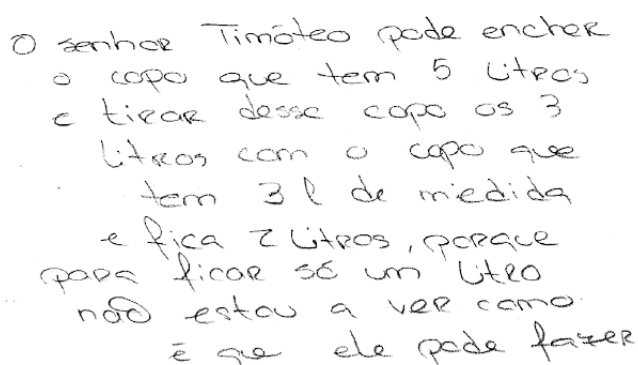 O senhor Timóteo pode encher
o copo que tem 5 litros
e tirar desse copo os 3
litros com o copo que
tem 3 l de miedida
e fica 2 litros, porque
para ficar só um litro
não estou a ver como
é que ele pode fazer